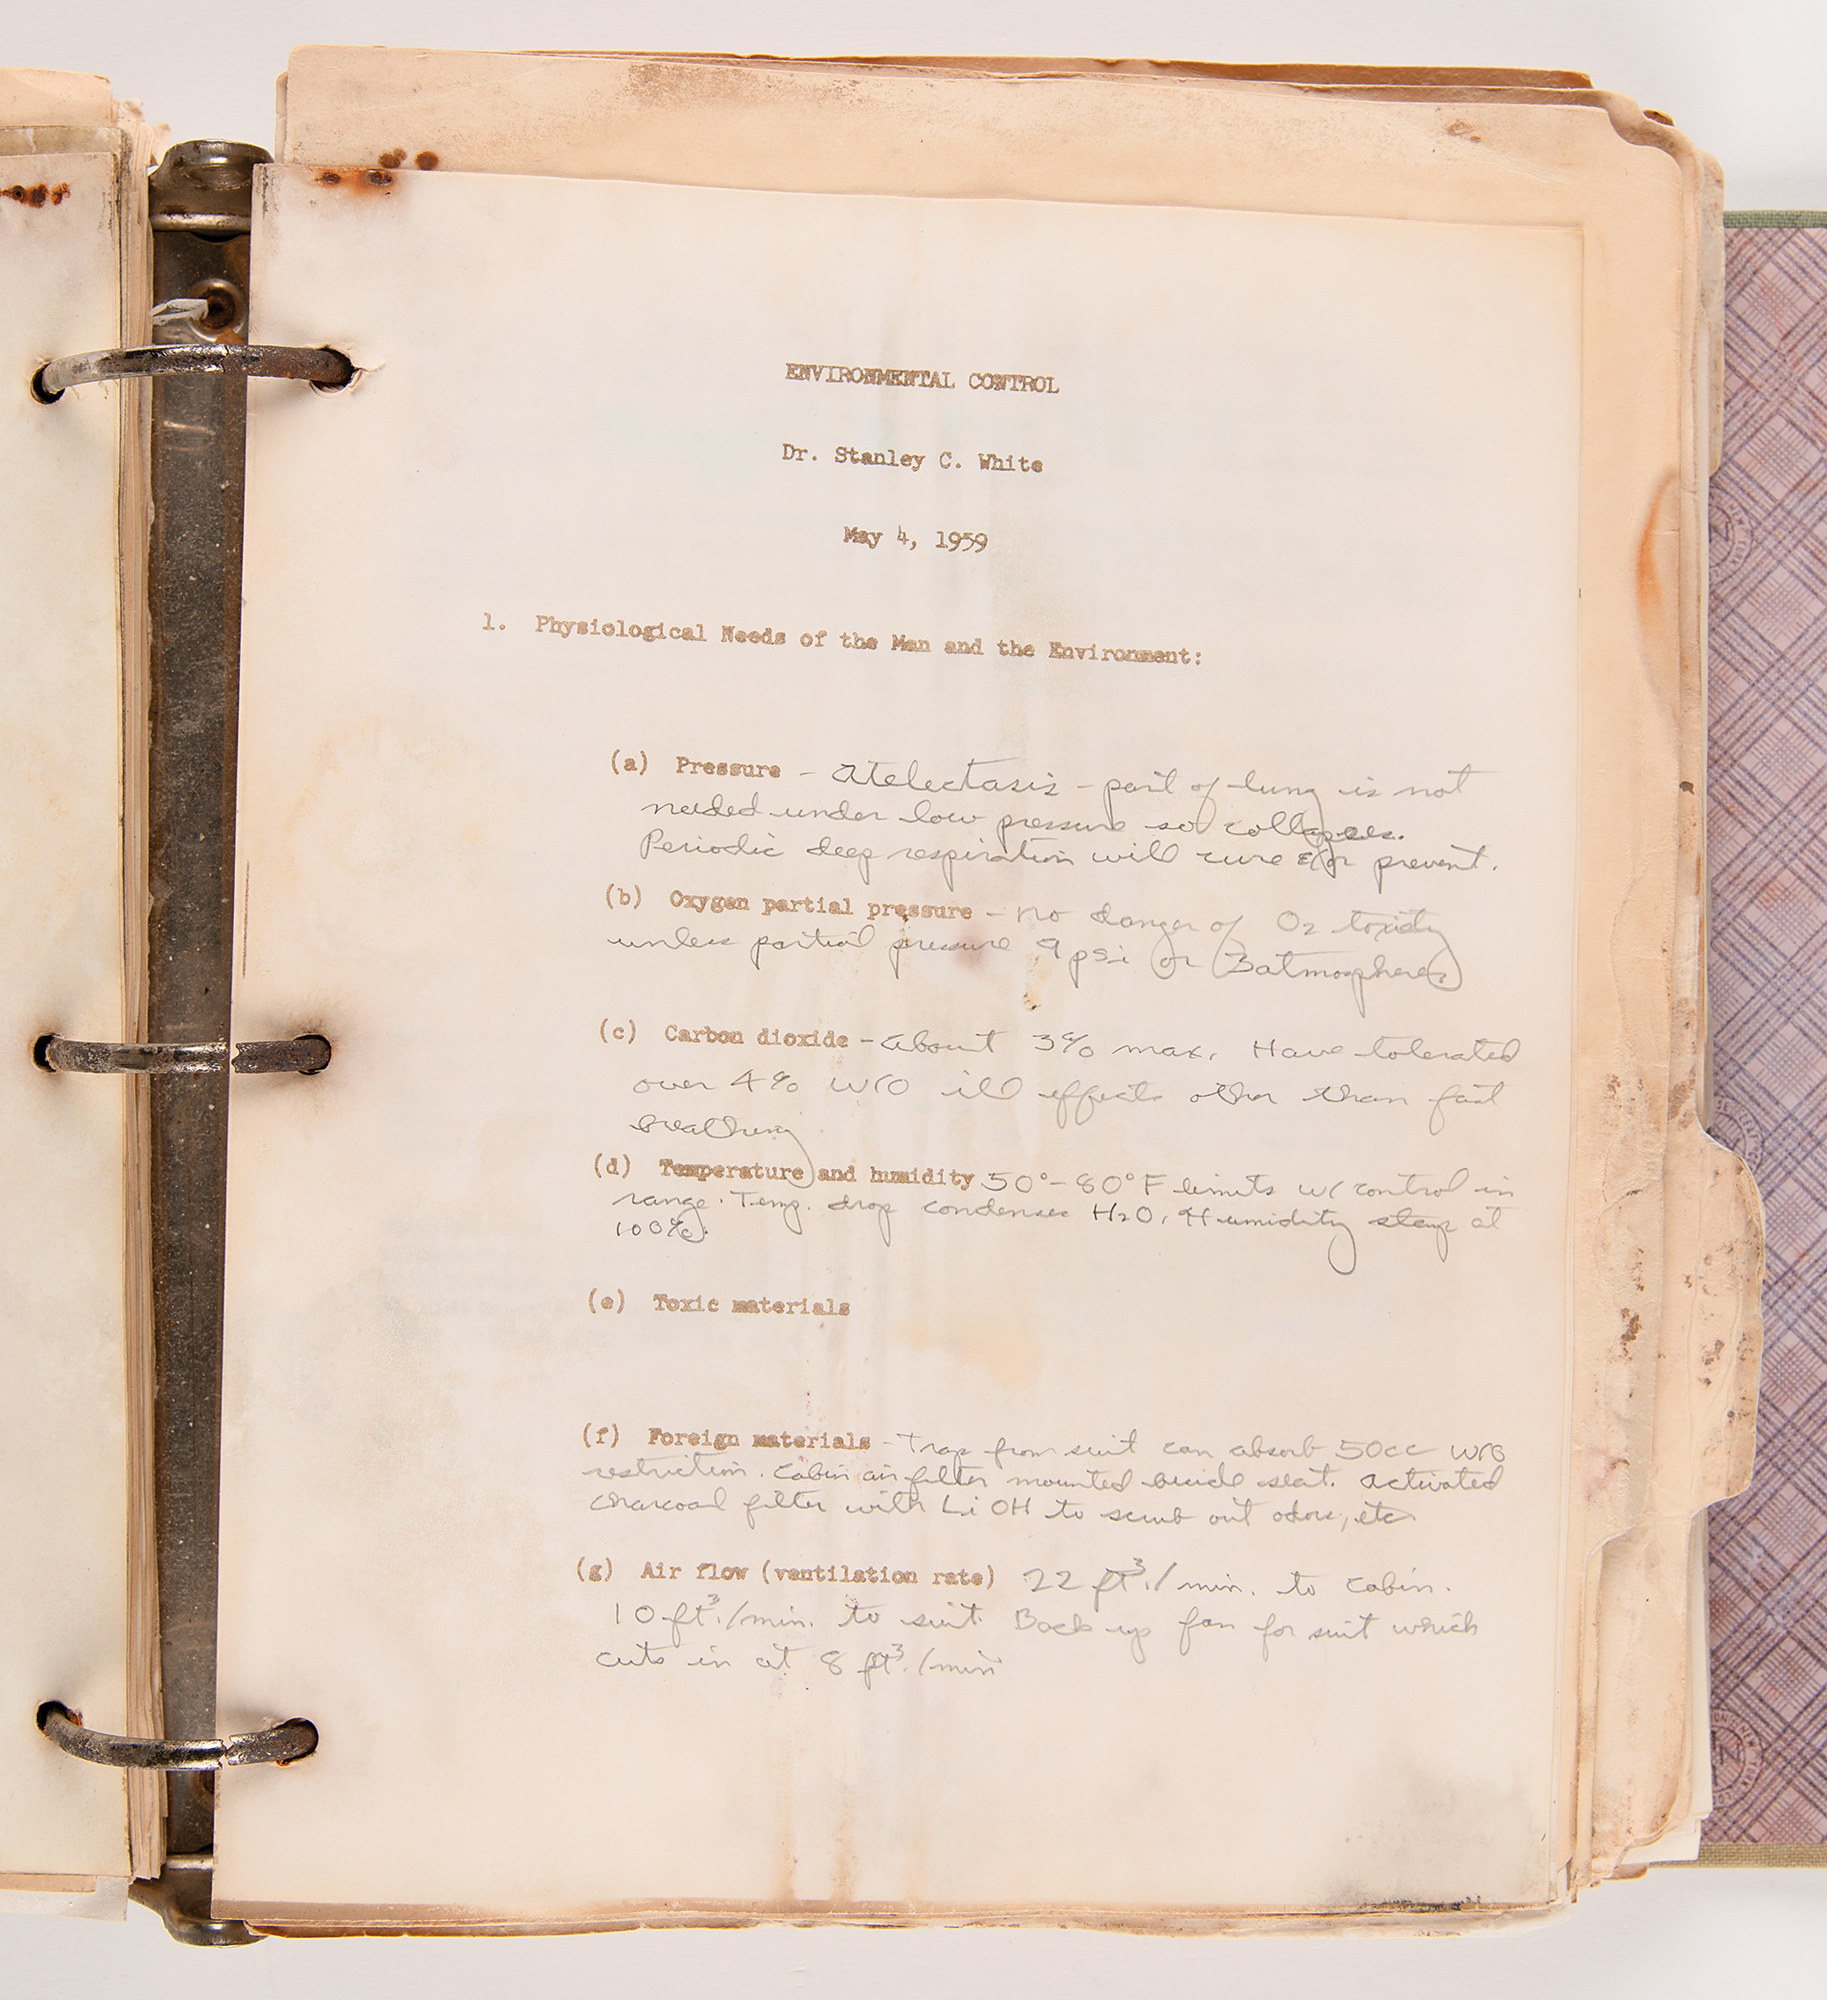 ENVIRONMENTAL CONTROL
Dr. Stanley C. White
May 4, 1959
1. Physiological Needs of the Man and the Environment:
(a) Pressure - Atelectasis - part of lung is not
needed under low pressure so collapses.
Periodic deep respiration will cure &/or prevent.
(b) Oxygen partial pressure - no danger of O2 toxicity
unless partial pressure 9 psi or 3 atmospheres
(c) Carbon dioxide - About 3% max. Have tolerated
over 4% w/o ill effects other than fast
breathing
(d) Temperature and humidity 50°-80°F limits w/ control in
range. Temp. drop condenses H2O. Humidity stays at
100%.
(e) Toxic materials
(f) Foreign materials - Trap from suit can absorb 50cc w/o
restriction. Cabin air filter mounted beside seat. Activated
charcoal filter with LiOH to scrub out odors, etc
(g) Air flow (ventilation rate) 22 ft³./min. to cabin.
10 ft³./min. to suit. Back up fan for suit which
cuts in at 8 ft³./min